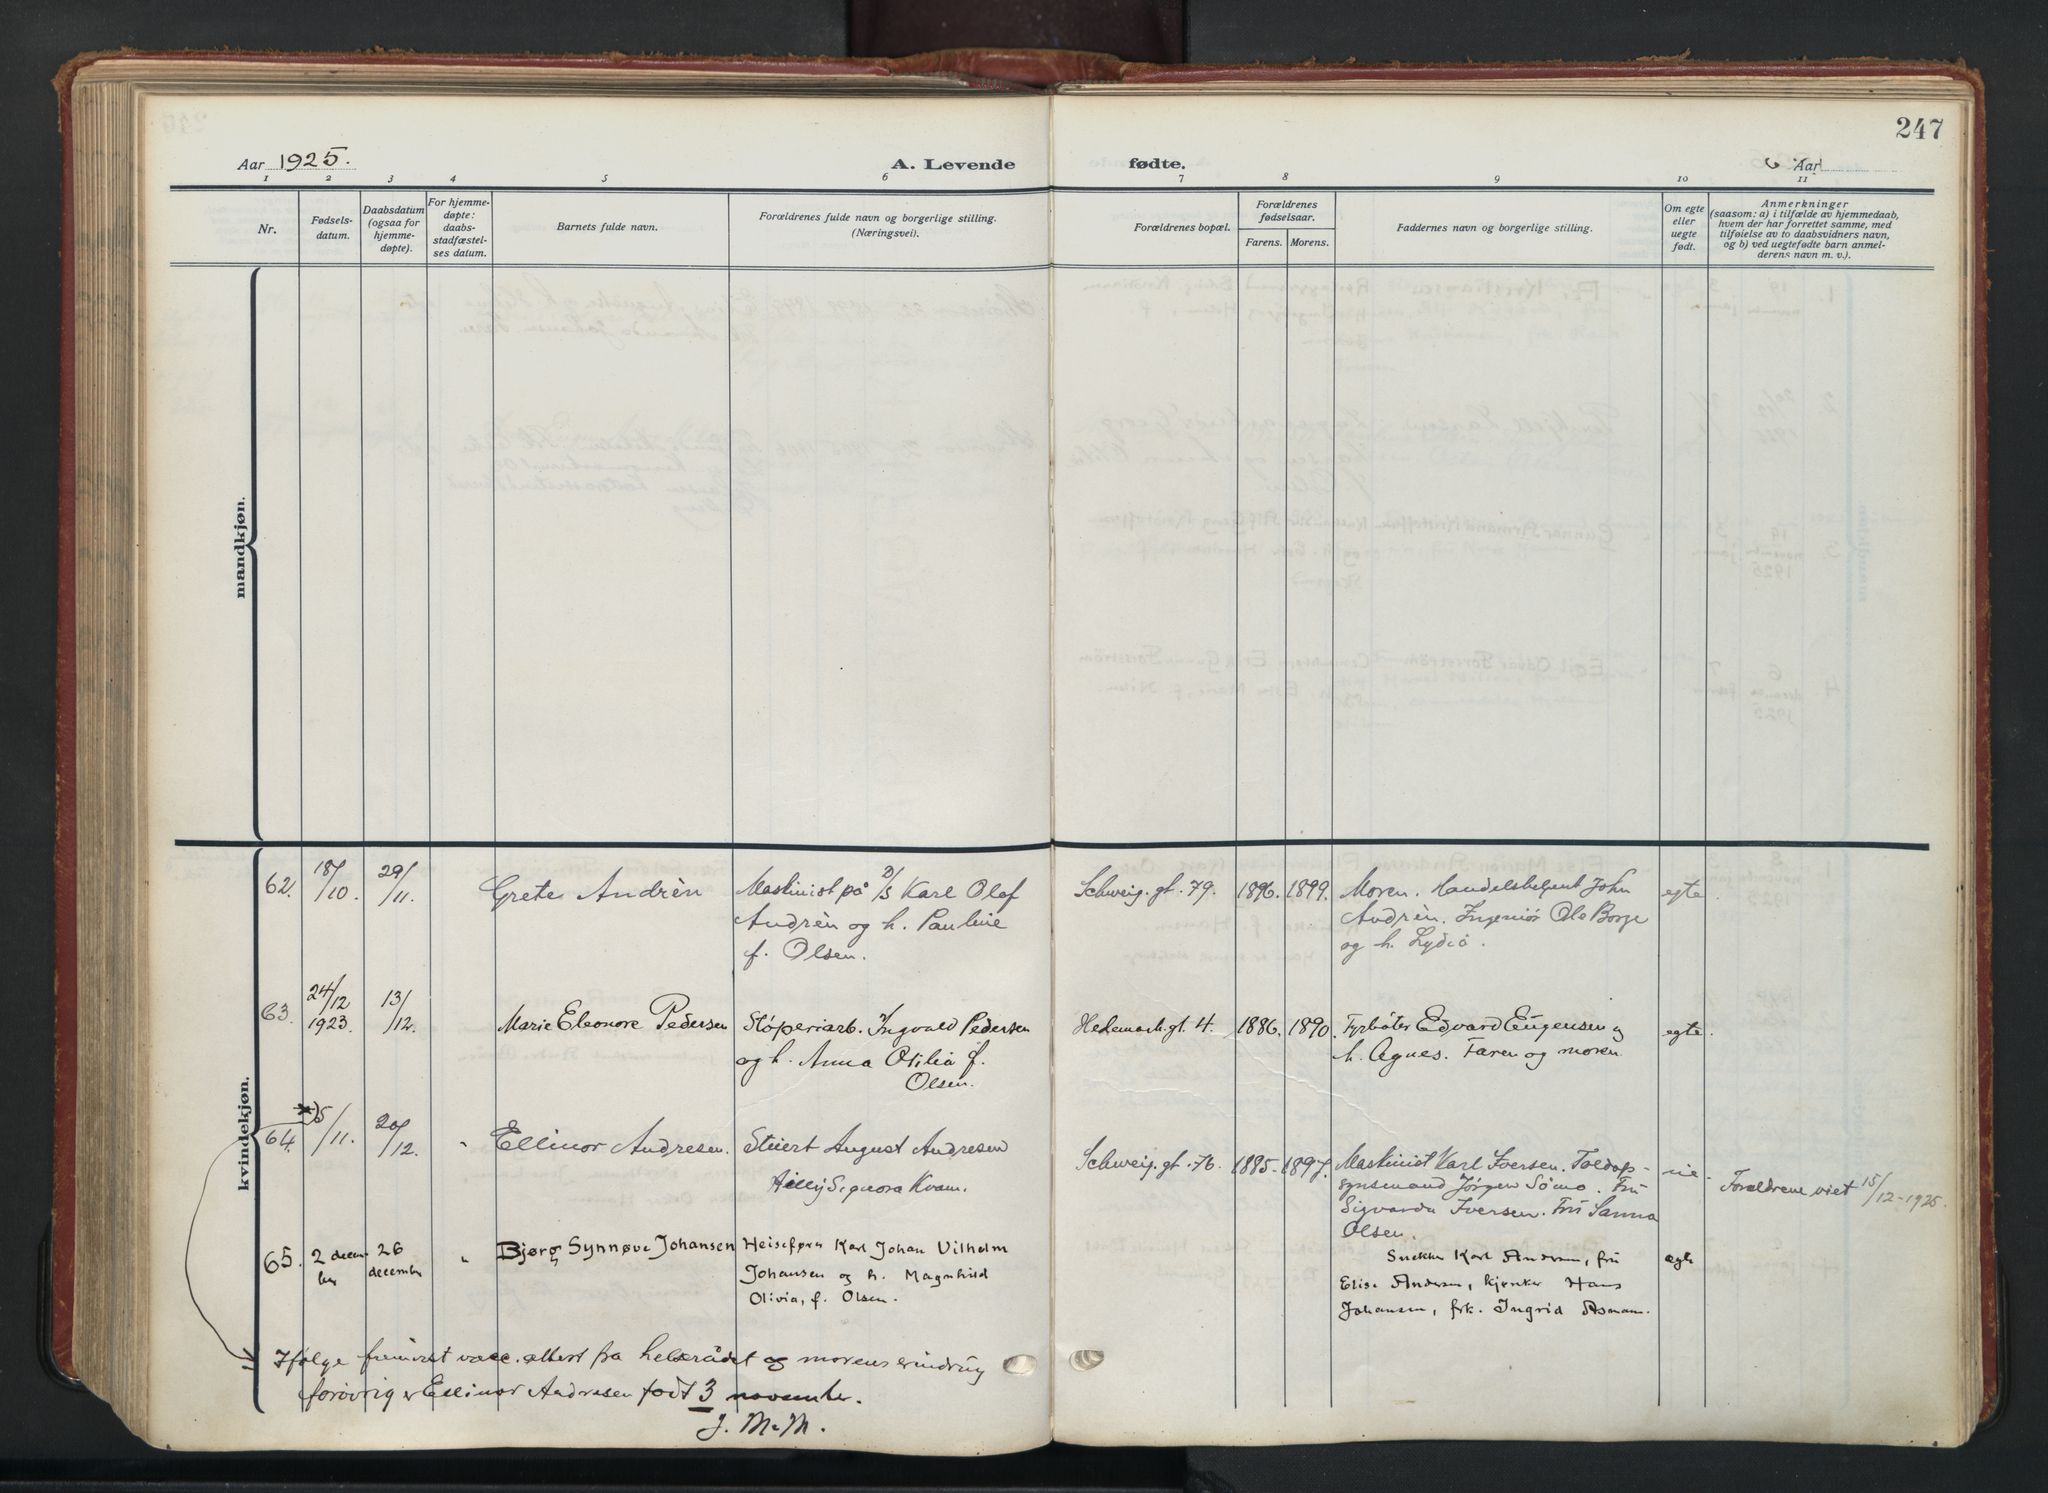 247
Aar 1925. A. Levende fødte. Aar
1 2 3 4 5 6 7 8 9 10 11
Nr.
Fødsels-
datum.
Daabsdatum
(ogsaa for
hjemme-
døpte).
For hjemme-
døpte:
daabs-
stadfæstel-
ses datum.
Barnets fulde navn.
Forældrenes fulde navn og borgerlige stilling.
(Næringsvei).
Forældrenes bopæl.
Forældrenes
fødselsaar.
Farens. Morens.
Faddernes navn og borgerlige stilling.
Om egte
eller
uegte
født.
Anmerkninger
(saasom: a) i tilfælde av hjemmedaab,
hvem der har forrettet samme, med
tilføielse av to daabsvidners navn,
og b) ved uegtefødte barn anmel-
derens navn m. v.).
mandkjøn.
kvindekjøn.
62. 18/10 29/11. Grete Andrèn Maskinist på D/S Karl Olaf Schweig. gt. 79. 1896. 1899. Moren. Handelsbetjent John egte
Andrèn og h. Pauline Andrèn. Ingeniør Ole Borge
f. Olsen. og h. Lydia.
63. 24/12 1923. 13/12. Marie Eleonore Pedersen Støperiarb. Ingvald Pedersen Hedemark. gt. 4. 1886. 1890. Fyrbøter Edvard Eugensen og egte
og h. Anna Otilia f. h. Agnes. Faren og moren.
Olsen.
64. *) 5/11. 20/12. " Ellinor Andresen. Stuert August Andresen Schweig. gt. 76. 1885. 1897. Maskinist Karl Iversen. Toldop-
Signora Kvam. synsmand Jørgen Sömo. Frü Foreldrene viet 15/12-1925.
Sigvarda Iversen. Frü Sanna
Olsen.
65. 2 decem- 26 " Bjørg Synnøve Johansen Heisefører Karl Johan Vilhelm Snekker Karl Andersen, fru egte
ber december Johansen og h. Magnhild Elise Andersen, kjørsker Hans
Olivia, f. Olsen. Johansen, frk. Ingrid Asmam.
Ifølge fremvist vacc. attest fra helserådet og morens erindring
forøvrig er Ellinor Andresen født 3 november.
J. M. M.